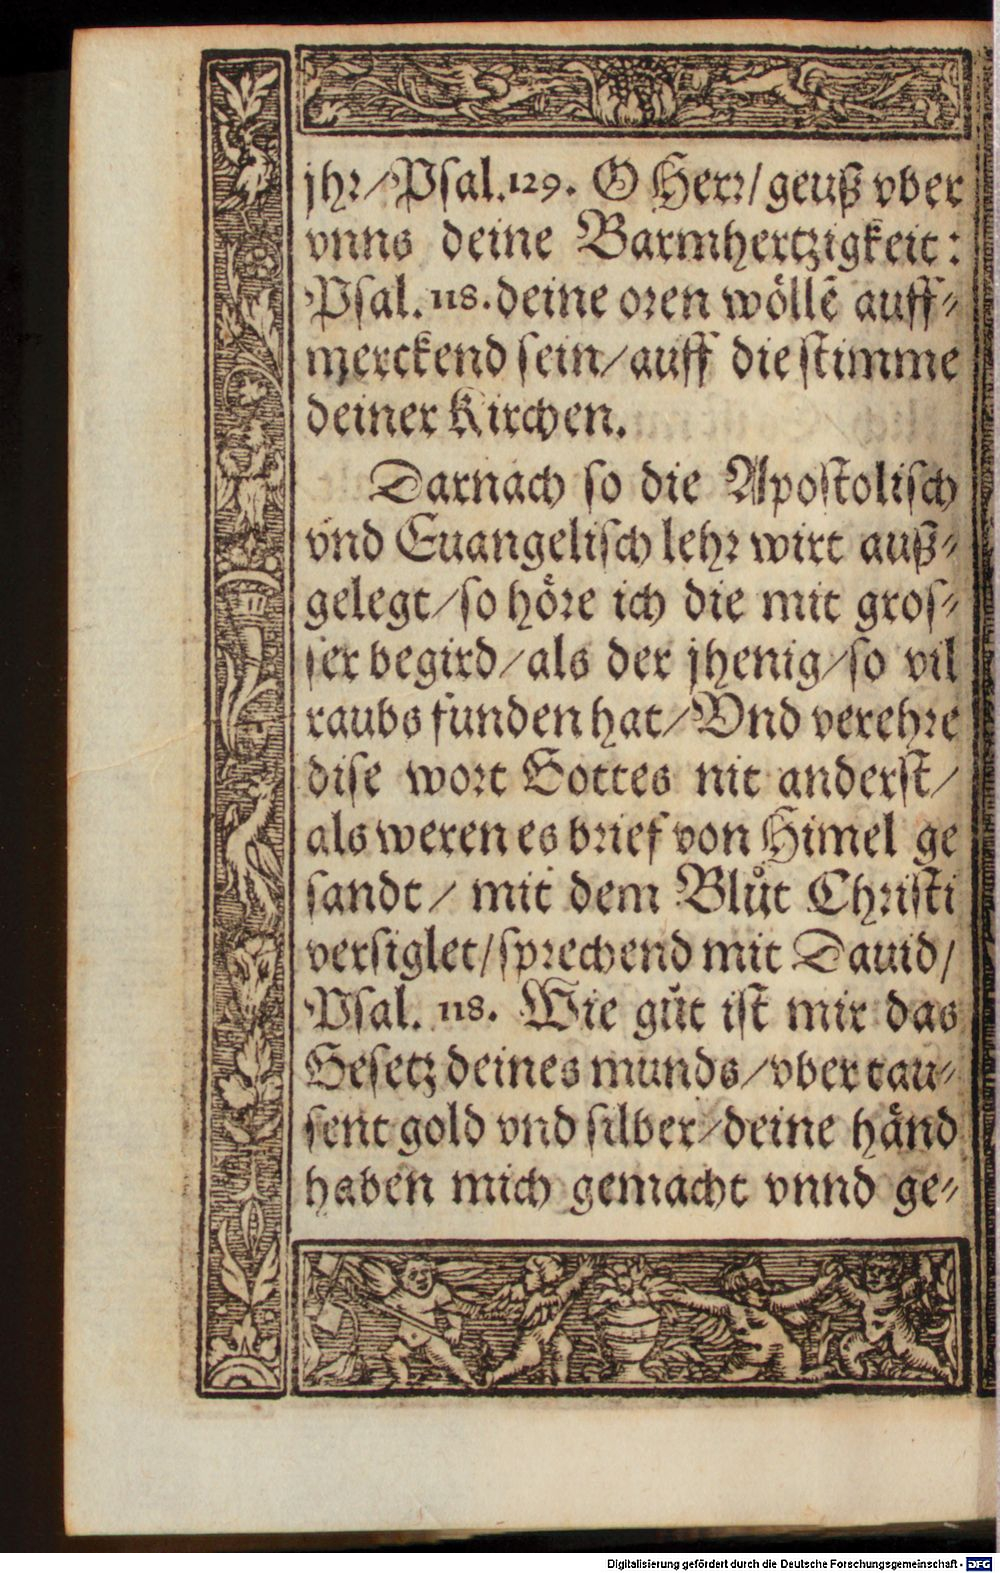 jhr/Psal.129. O Herr/geuß vber
vnns deine Barmhertzigkeit:
Psal. 118. deine oren wöllẽ auff-
merckend sein/auff die stimme
deiner Kirchen.
Darnach so die Apostolisch
vnd Euangelisch lehr wirt auß-
gelegt/so höre ich die mit gros-
ser begird/als der jhenig/so vil
raubs funden hat/Vnd verehre
dise wort Gottes nit anderst/
als weren es brief von Himel ge
sandt/ mit dem Blůt Christi
versiglet/sprechend mit Dauid/
Psal. 118. Wie gůt ist mir das
Gesetz deines munds/vber tau-
sent gold vnd silber/deine händ
haben mich gemacht vnnd ge-
Digitalisierung gefördert durch die Deutsche Forschungsgemeinschaft - DFG